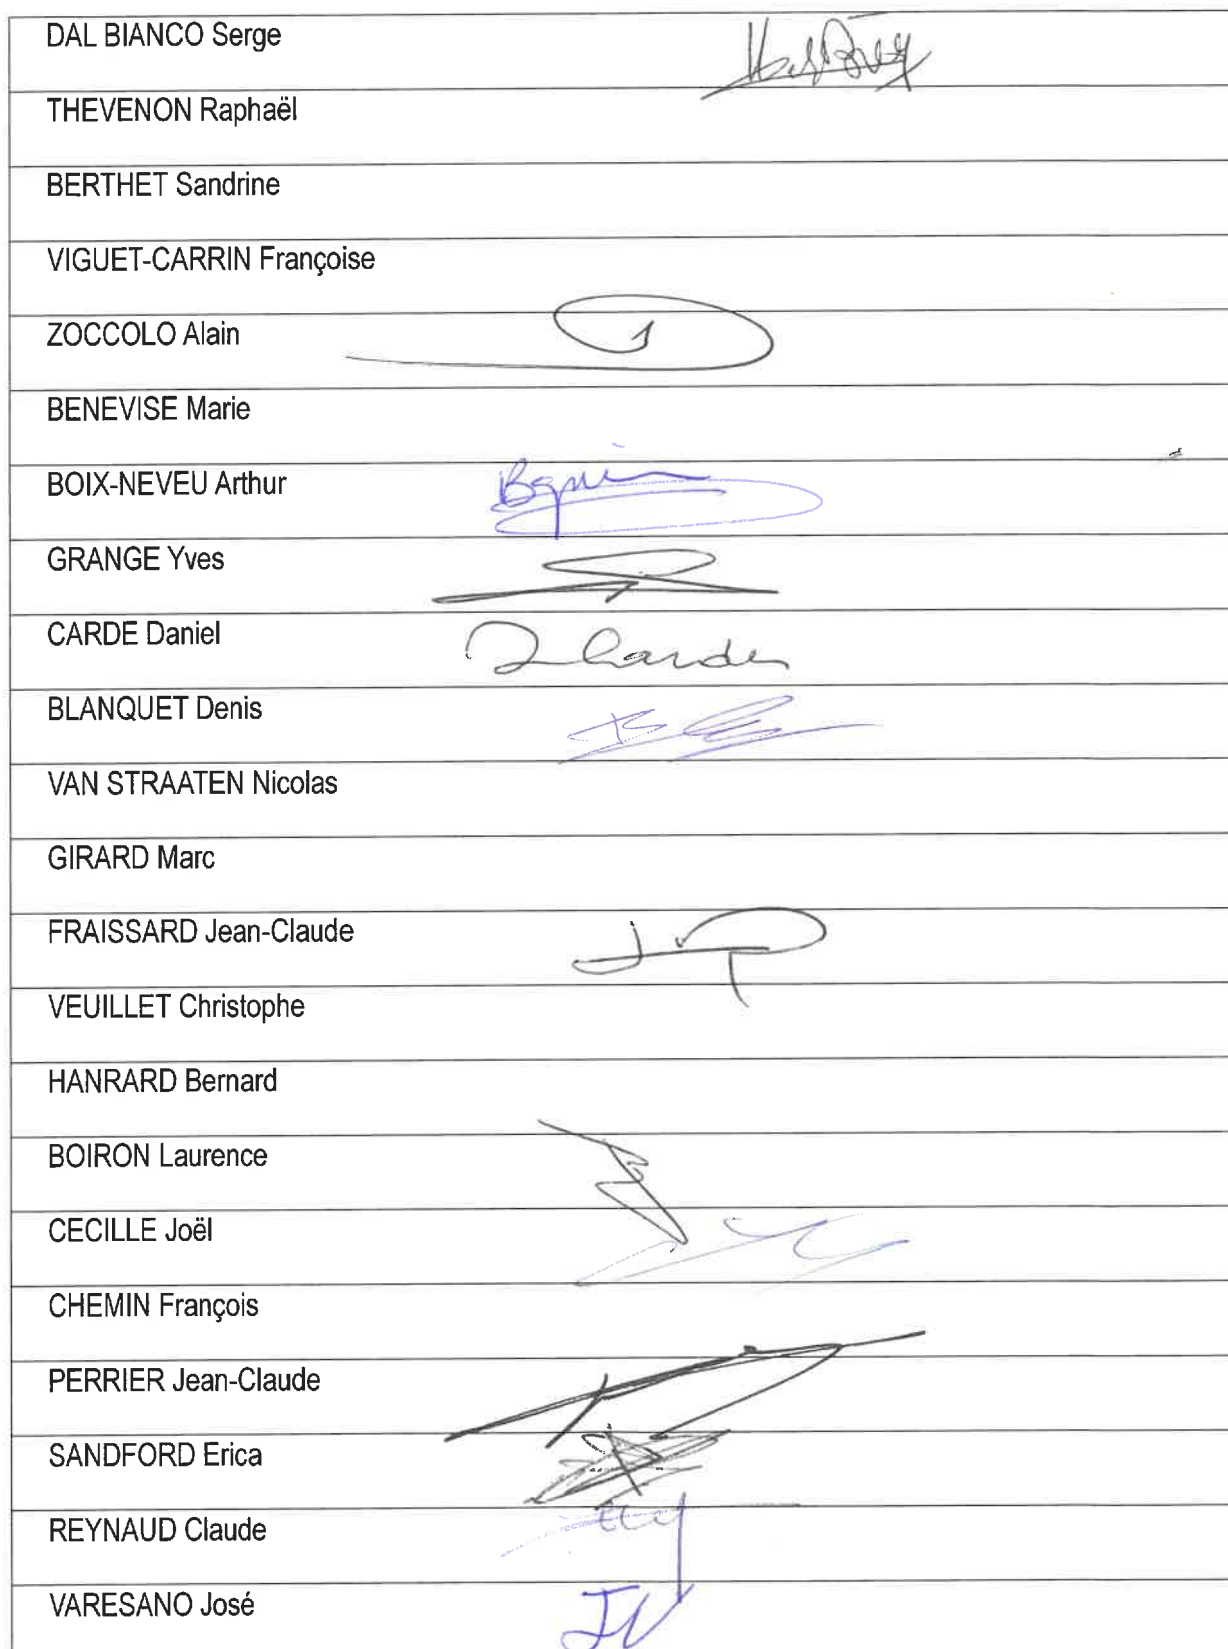 DAL BIANCO Serge
THEVENON Raphaël
BERTHET Sandrine
VIGUET-CARRIN Françoise
ZOCCOLO Alain
BENEVISE Marie
BOIX-NEVEU Arthur
GRANGE Yves
CARDE Daniel
BLANQUET Denis
VAN STRAATEN Nicolas
GIRARD Marc
FRAISSARD Jean-Claude
VEUILLET Christophe
HANRARD Bernard
BOIRON Laurence
CECILLE Joël
CHEMIN François
PERRIER Jean-Claude
SANDFORD Erica
REYNAUD Claude
VARESANO José
JV